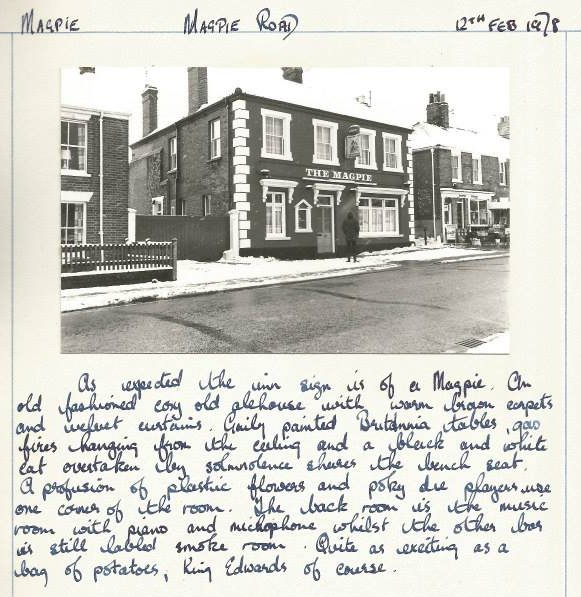 MAGPIE MAGPIE ROAD 12TH FEB 1978
THE MAGPIE
As expected the inn sign is of a Magpie. An
old fashioned cosy old alehouse with warm brown carpets
and velvet curtains. Gaily painted Britannia tables, gas
fires hanging from the ceiling and a black and white
cat overtaken by solmnolence shares the bench seat.
A profusion of plastic flowers and poky die players use
one corner of the room. The back room is the music
room with piano and michophone whilst the other bar
is still labled smoke room. Quite as exciting as a
bag of potatoes, King Edwards of course.